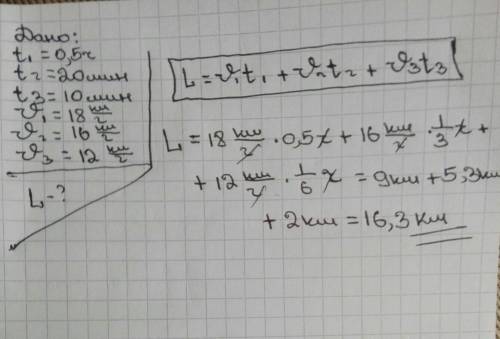 Дано:
t₁ = 0,5ч
t₂ = 20мин
t₃ = 10мин
𝜗₁ = 18 км/ч
𝜗₂ = 16 км/ч
𝜗₃ = 12 км/ч
L - ?
L = 𝜗₁t₁ + 𝜗₂t₂ + 𝜗₃t₃
L = 18 км/ч · 0,5ч + 16 км/ч · 1/3 ч +
+ 12 км/ч · 1/6 ч = 9км + 5,3км
+ 2км = 16,3 км